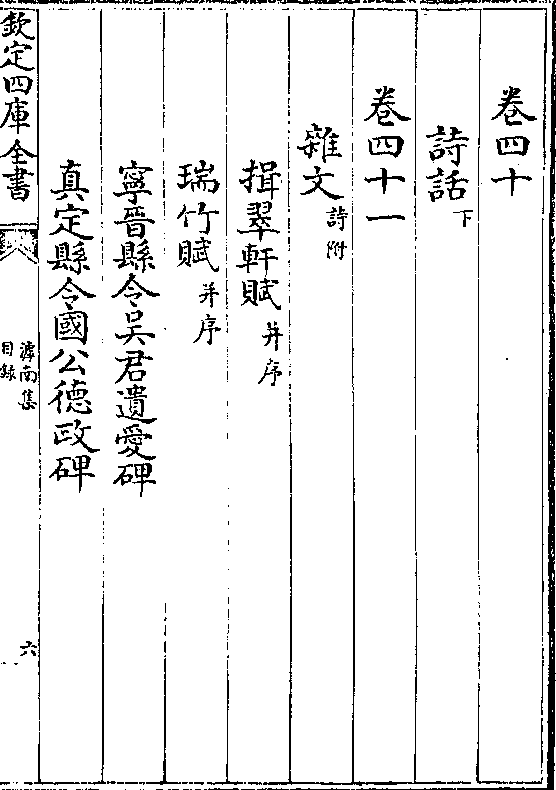 卷四十
詩話下
卷四十一
雜文詩附
揖翠軒賦并序
瑞竹賦并序
寧晉縣令吴君遺愛碑
真定縣令國公德政碑
欽定四庫全書
滹南集
目錄
六